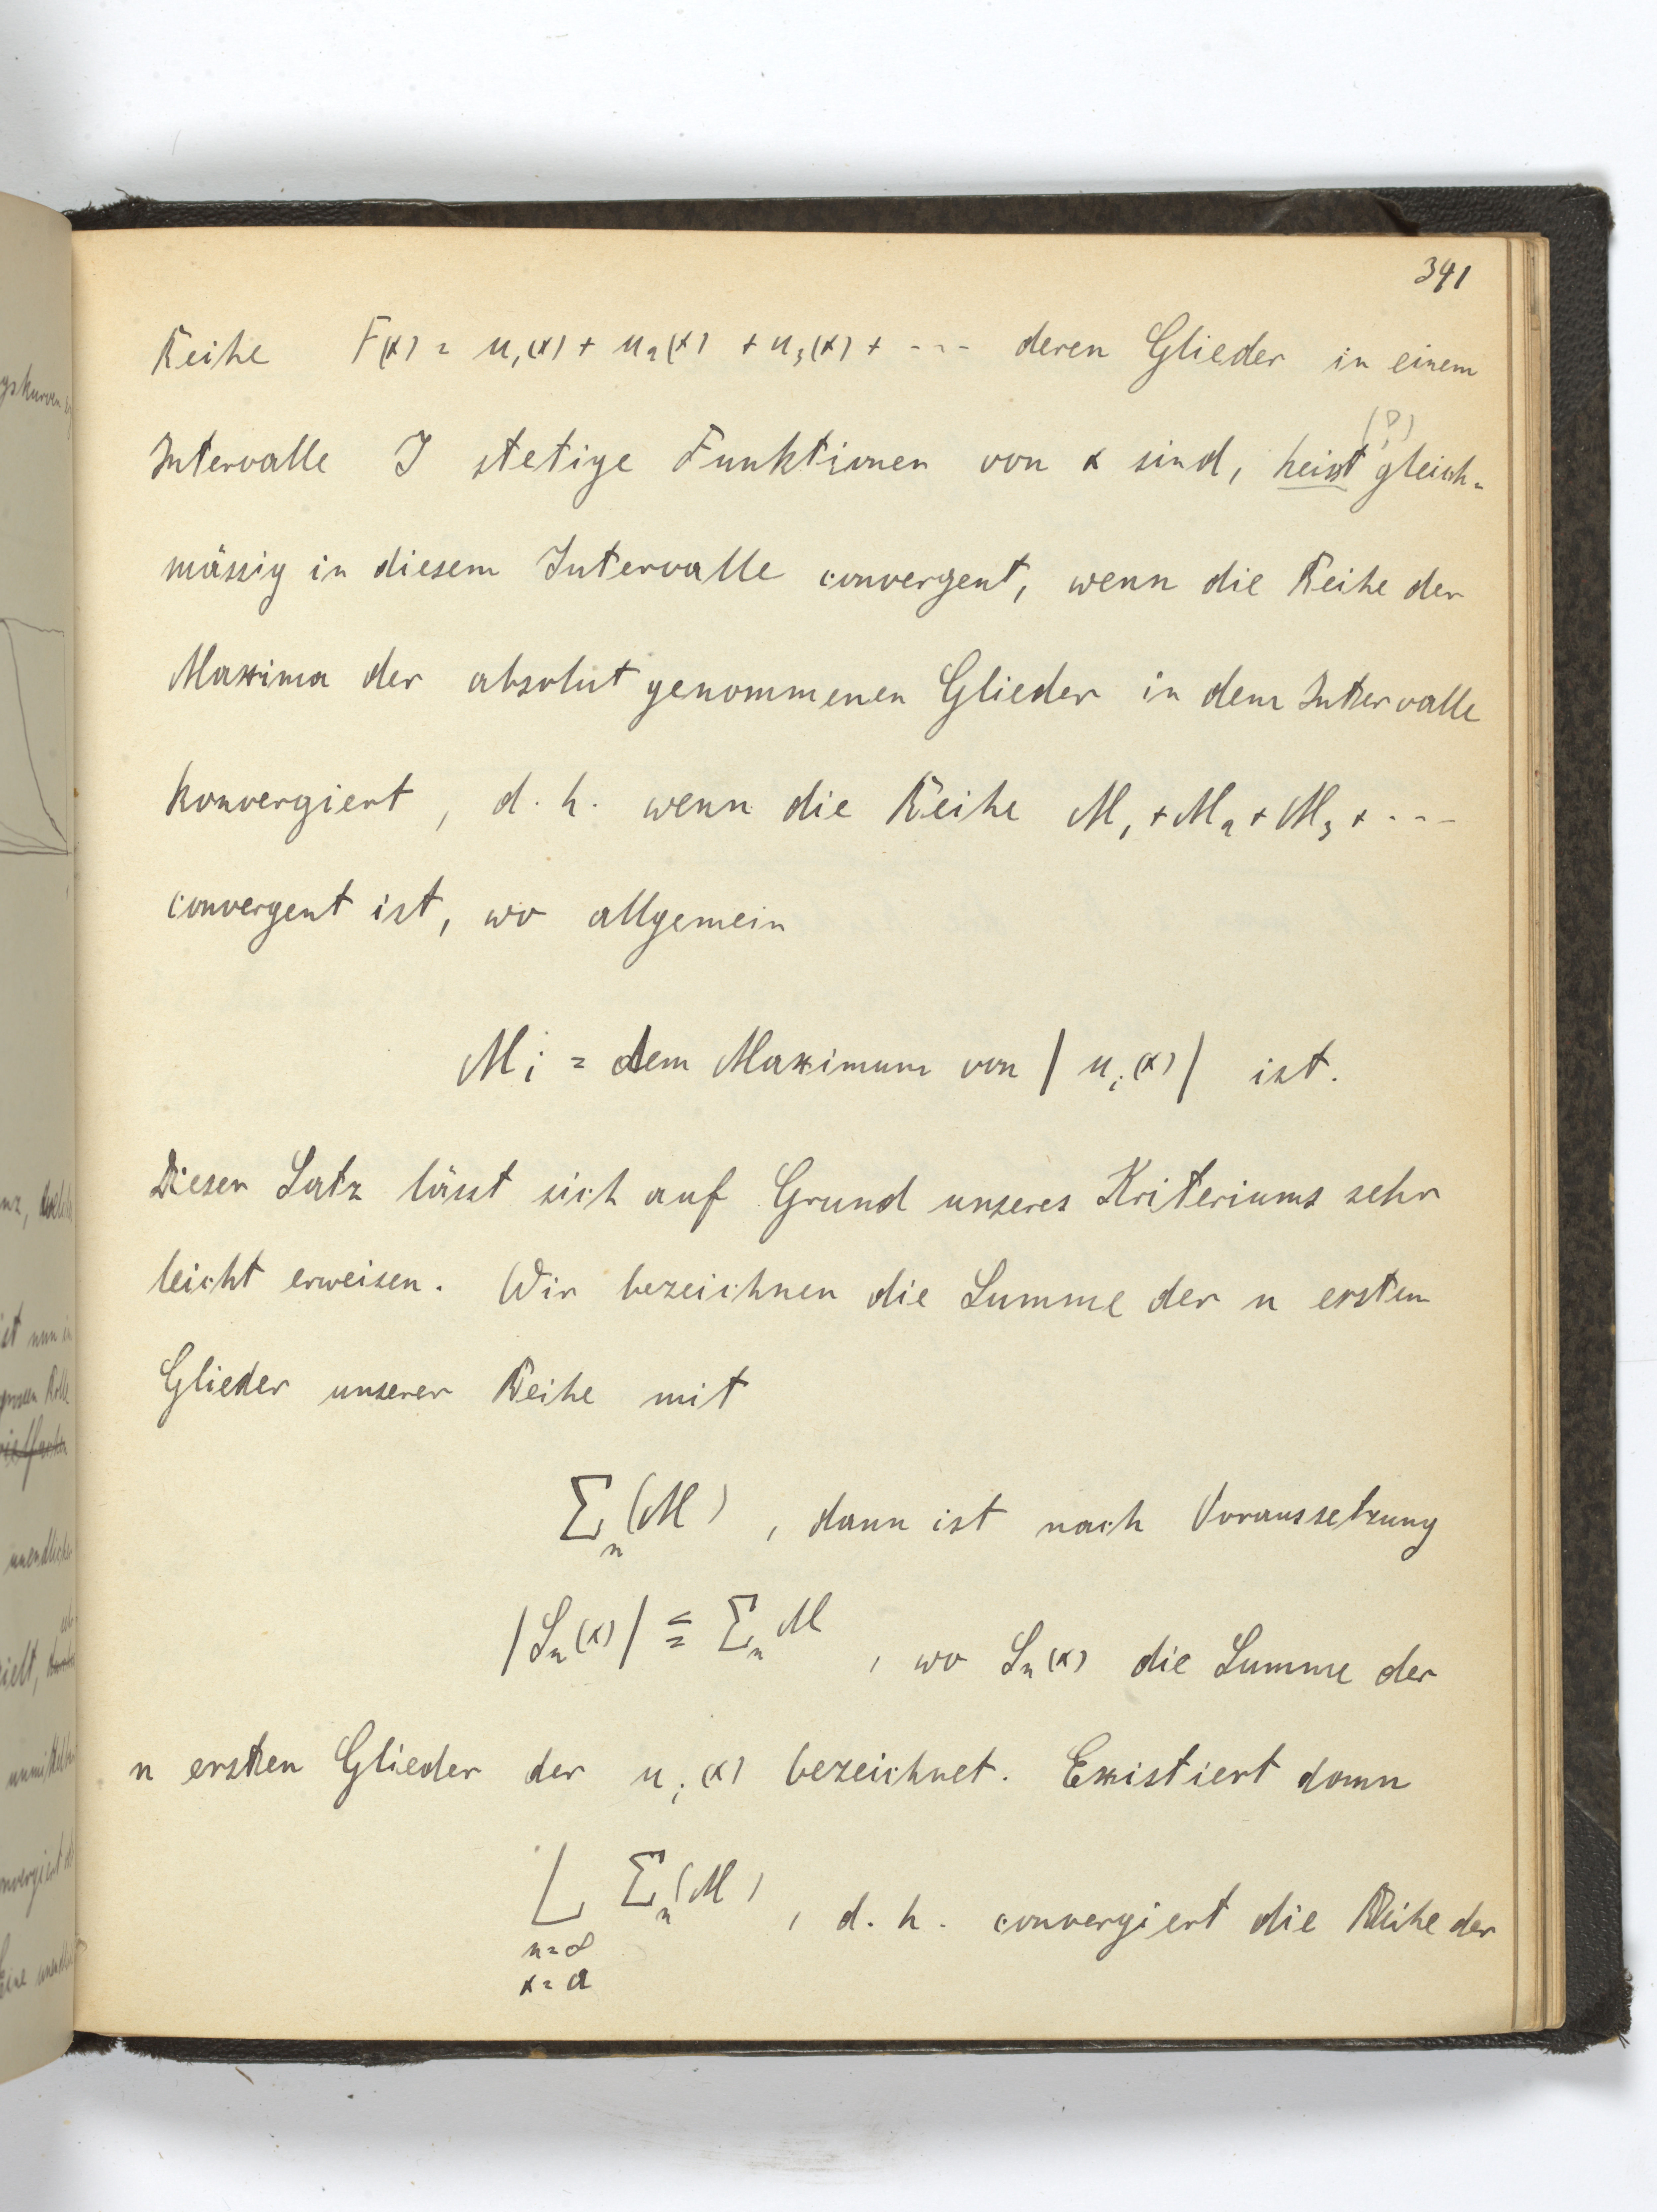 341
Reihe F(x) = u₁(x) + u₂(x) + u₃(x) + --- deren Glieder in einem
(?)
Intervalle J stetige Funktionen von x sind, heisst gleich=
mässig in diesem Intervalle convergent, wenn die Reihe der
Maxima der absolut genommenen Glieder in dem Intervalle
konvergiert, d. h. wenn die Reihe M₁ + M₂ + M₃ + ---
convergent ist, wo allgemein
Mᵢ = dem Maximum von | uᵢ(x) | ist.
Dieser Satz lässt sich auf Grund unseres Kriteriums sehr
leicht erweisen. Wir bezeichnen die Summe der n ersten
Glieder unserer Reihe mit
Σₙ (M) , dann ist nach Voraussetzung
|Sₙ(x)| ≦ Σₙ M , wo Sₙ(x) die Summe der
n ersten Glieder der uᵢ(x) bezeichnet. Existiert dann
L Σₙ(M) , d. h. convergiert die Reihe der
n=∞
x=a